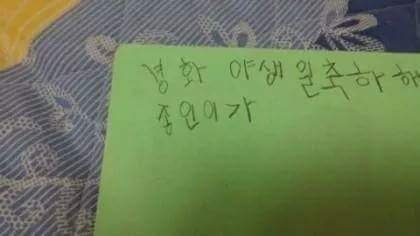 녕화 야생일축하해
종인이가